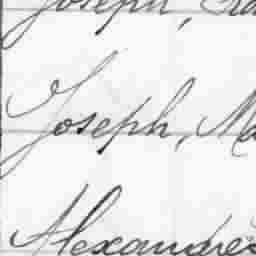 Joseph,
Joseph, Ma
Alexandre